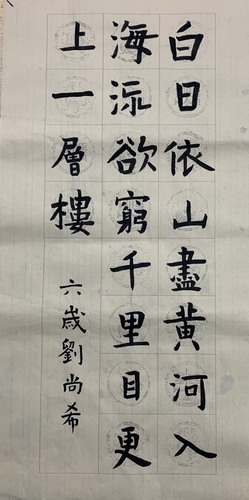 白日依山盡黄河入
海流欲窮千里目更
上一層樓
六歲劉尚希